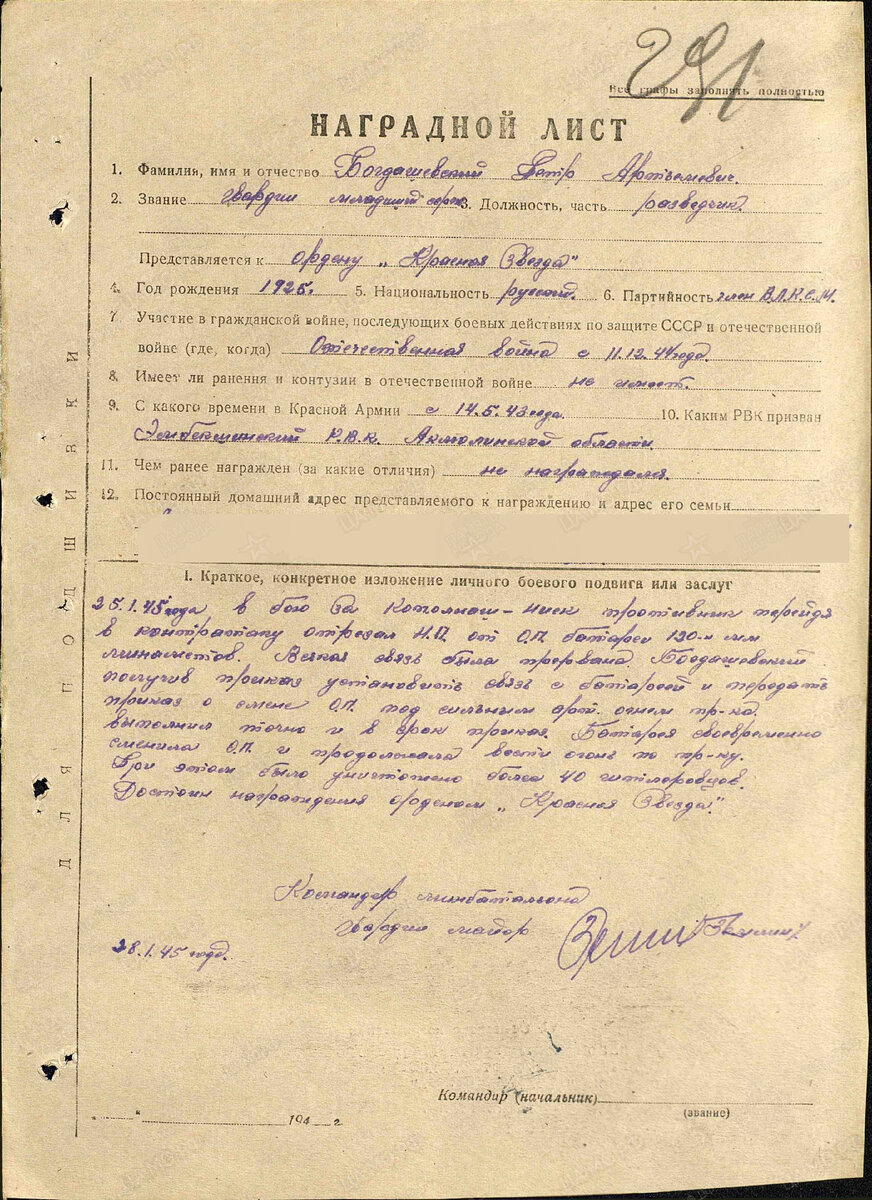 291
Все графы заполнять полностью
НАГРАДНОЙ ЛИСТ
1. Фамилия, имя и отчество Богдашевский Петр Артемович.
2. Звание гвардии младший серж. 3. Должность, часть разведчик.
Представляется к ордену „Красная Звезда"
4. Год рождения 1925. 5. Национальность русский. 6. Партийность член В.Л.К.С.М.
7. Участие в гражданской войне, последующих боевых действиях по защите СССР и отечественной
войне (где, когда) Отечественная война с 11.12.44 года.
8. Имеет ли ранения и контузии в отечественной войне не имеет.
9. С какого времени в Красной Армии с 14.5.43 года. 10. Каким РВК призван
Р.В.К. Акмолинской области.
11. Чем ранее награжден (за какие отличия) не награждался.
12. Постоянный домашний адрес представляемого к награждению и адрес его семьи
I. Краткое, конкретное изложение личного боевого подвига или заслуг
25.1.45 года в бою за противник перейдя
в контратаку отрезал Н.П. от О.П. батареи 120-м мм
минометов. Всякая связь была прервана. Богдашевский
получив приказ установить связь с батареей и передать
приказ о смене О.П. под сильным арт. огнем пр-ка
выполнил точно и в срок приказ. Батарея своевременно
сменила О.П. и продолжала вести огонь по пр-ку.
При этом было уничтожено более 40 гитлеровцев.
Достоин награждения орденом „Красная Звезда".
Командир минбатальона
гвардии майор
28.1.45 года.
Командир (начальник)
(звание)
" " 194 г.
ДЛЯ ПОДШИВКИ